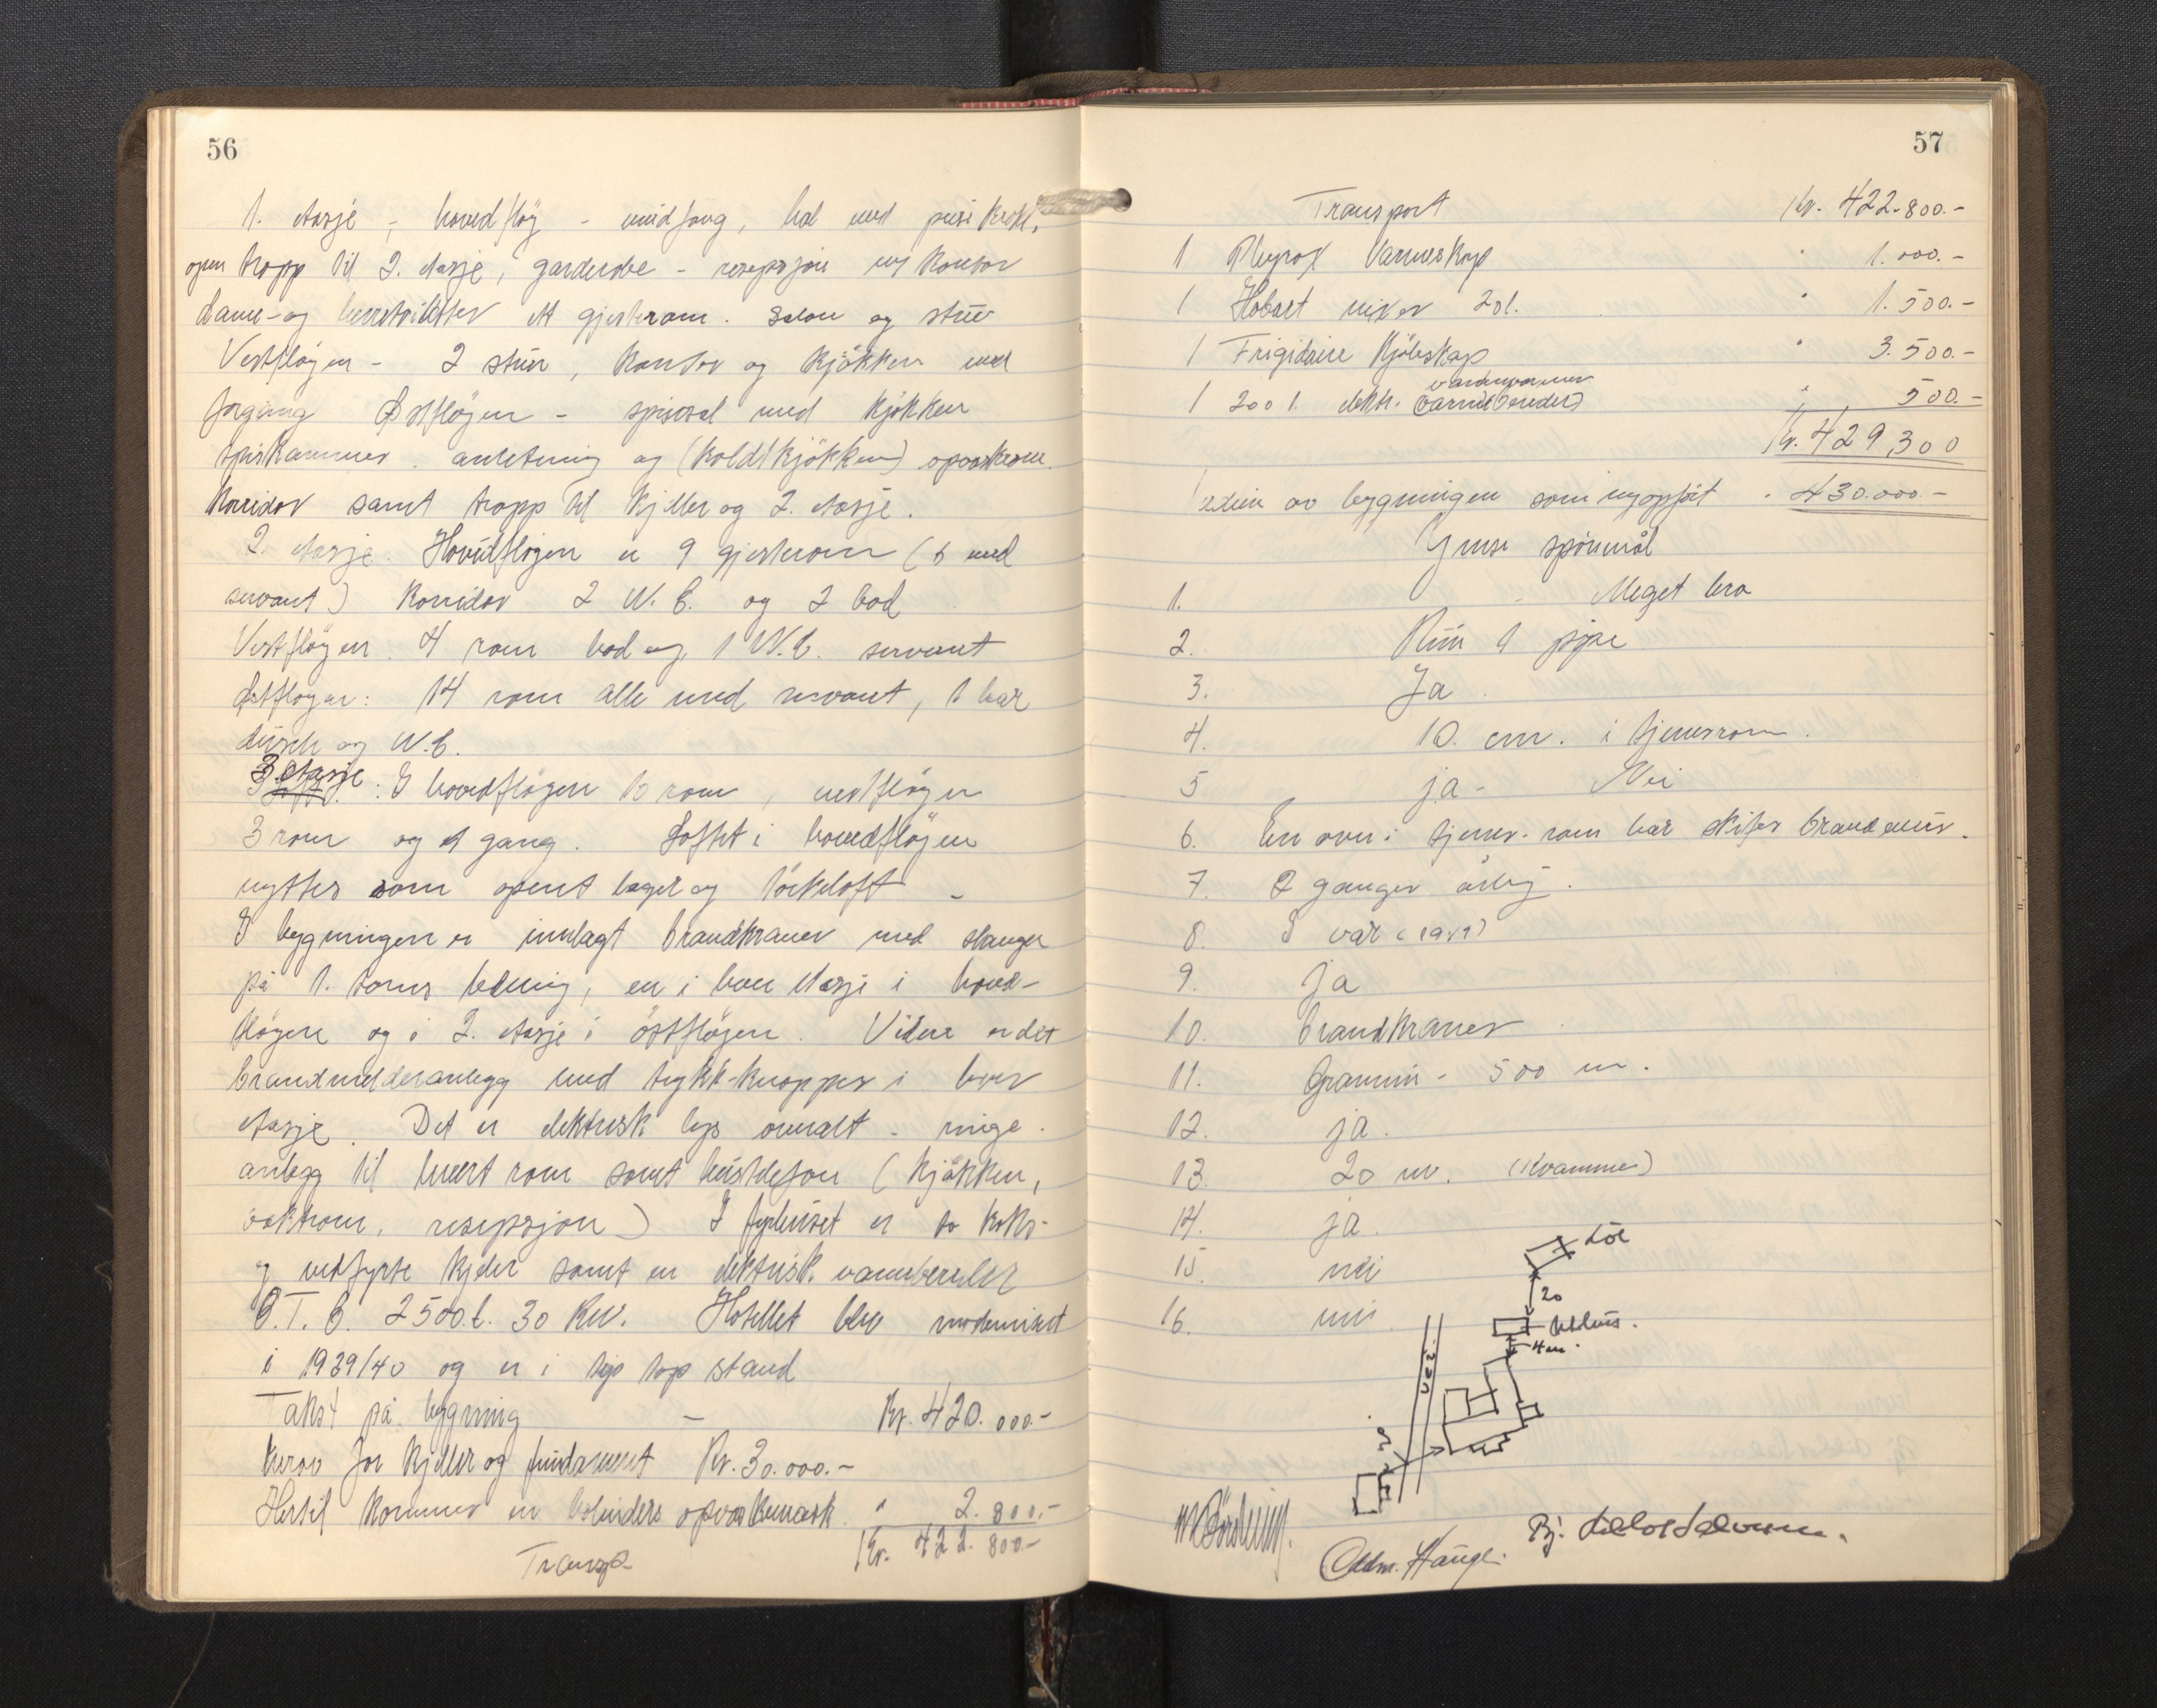 56
1. etasje - hovedfløy - vindfang, hal med peiskrok,
open tropp til 2. etasje, garderobe - resepsjon m/ kontor
Dame- og herretoiletter ett gjesterom. Salon og stue
Vestfløyen - 2 stuer, kontor og kjøkken med
forgang Østfløyen - spisesal med kjøkken
spiskammer. anretning og (koldtkjøkken) opvaskrom.
Korridor samt tropp til kjeller og 2. etasje.
2. etasje. Hovedfløyen er 9 gjesterom (6 med
servant) Korridor 2 W.C. og 2 bod
Vestfløyen. 4 rom bod og 1 W.C. servant
Østfløyen: 14 rom alle med servant, 1 har
dusch og W.C.
3 etasje : I hovedfløyen 10 rom, vestfløyen
3 rom og 1 gang. Loftet i hovedfløyen
nyttes som opent lager og tørkeloft -
I bygningen er innlagt brandkraner med slanger
på 1. toms ledning, en i hver etasje i hoved-
fløyen og i 2. etasje i østfløyen. Videre er det
brandmelderanlegg med trykk-knopper i hver
etasje. Det er elektrisk lys overalt - ringe-
anlegg til hvert rom samt hustelefon (kjøkken,
vaktrom, resepsjon) I fyrhuset er to koks-
og vedfyrte kjeler samt en elektrisk vannbereder
O.T.B. 2500 l. 30 Kw. Hotellet blev modernisert
i 1939/40 og er i tip top stand
Takst på bygning - Kr. 420.000.-
herav for kjeller og fundament Kr. 30.000.-
Hertil kommer en opvaskmask. " 2.800.-
Transp. Kr. 422.800.-
57
Transport Kr. 422.800.-
1 Varmeskap " 1.000.-
1 Hobart mixer 20 l. " 1.500.-
1 Frigidaire Kjøleskap " 3.500.-
1 200 l. elektr. " 500.-
Kr. 429,300
Verdien av bygningen som nyoppført " 430.000.-
Ymse spørsmål
1. Meget bra
2. Mur 9 piper
3. Ja
4. 10. cm. i fjernrom.
5 ja - Nei
6. En ovn i rom har skifer brandmur.
7. 2 ganger årlig.
8. I vår
9. ja
10. brandkraner
11. Gravin - 500 m.
12. ja.
13. 20 m. (Kvamme)
14. ja.
15. nei
16. nei
Løe
20
Eldhus.
4 m.
Vei